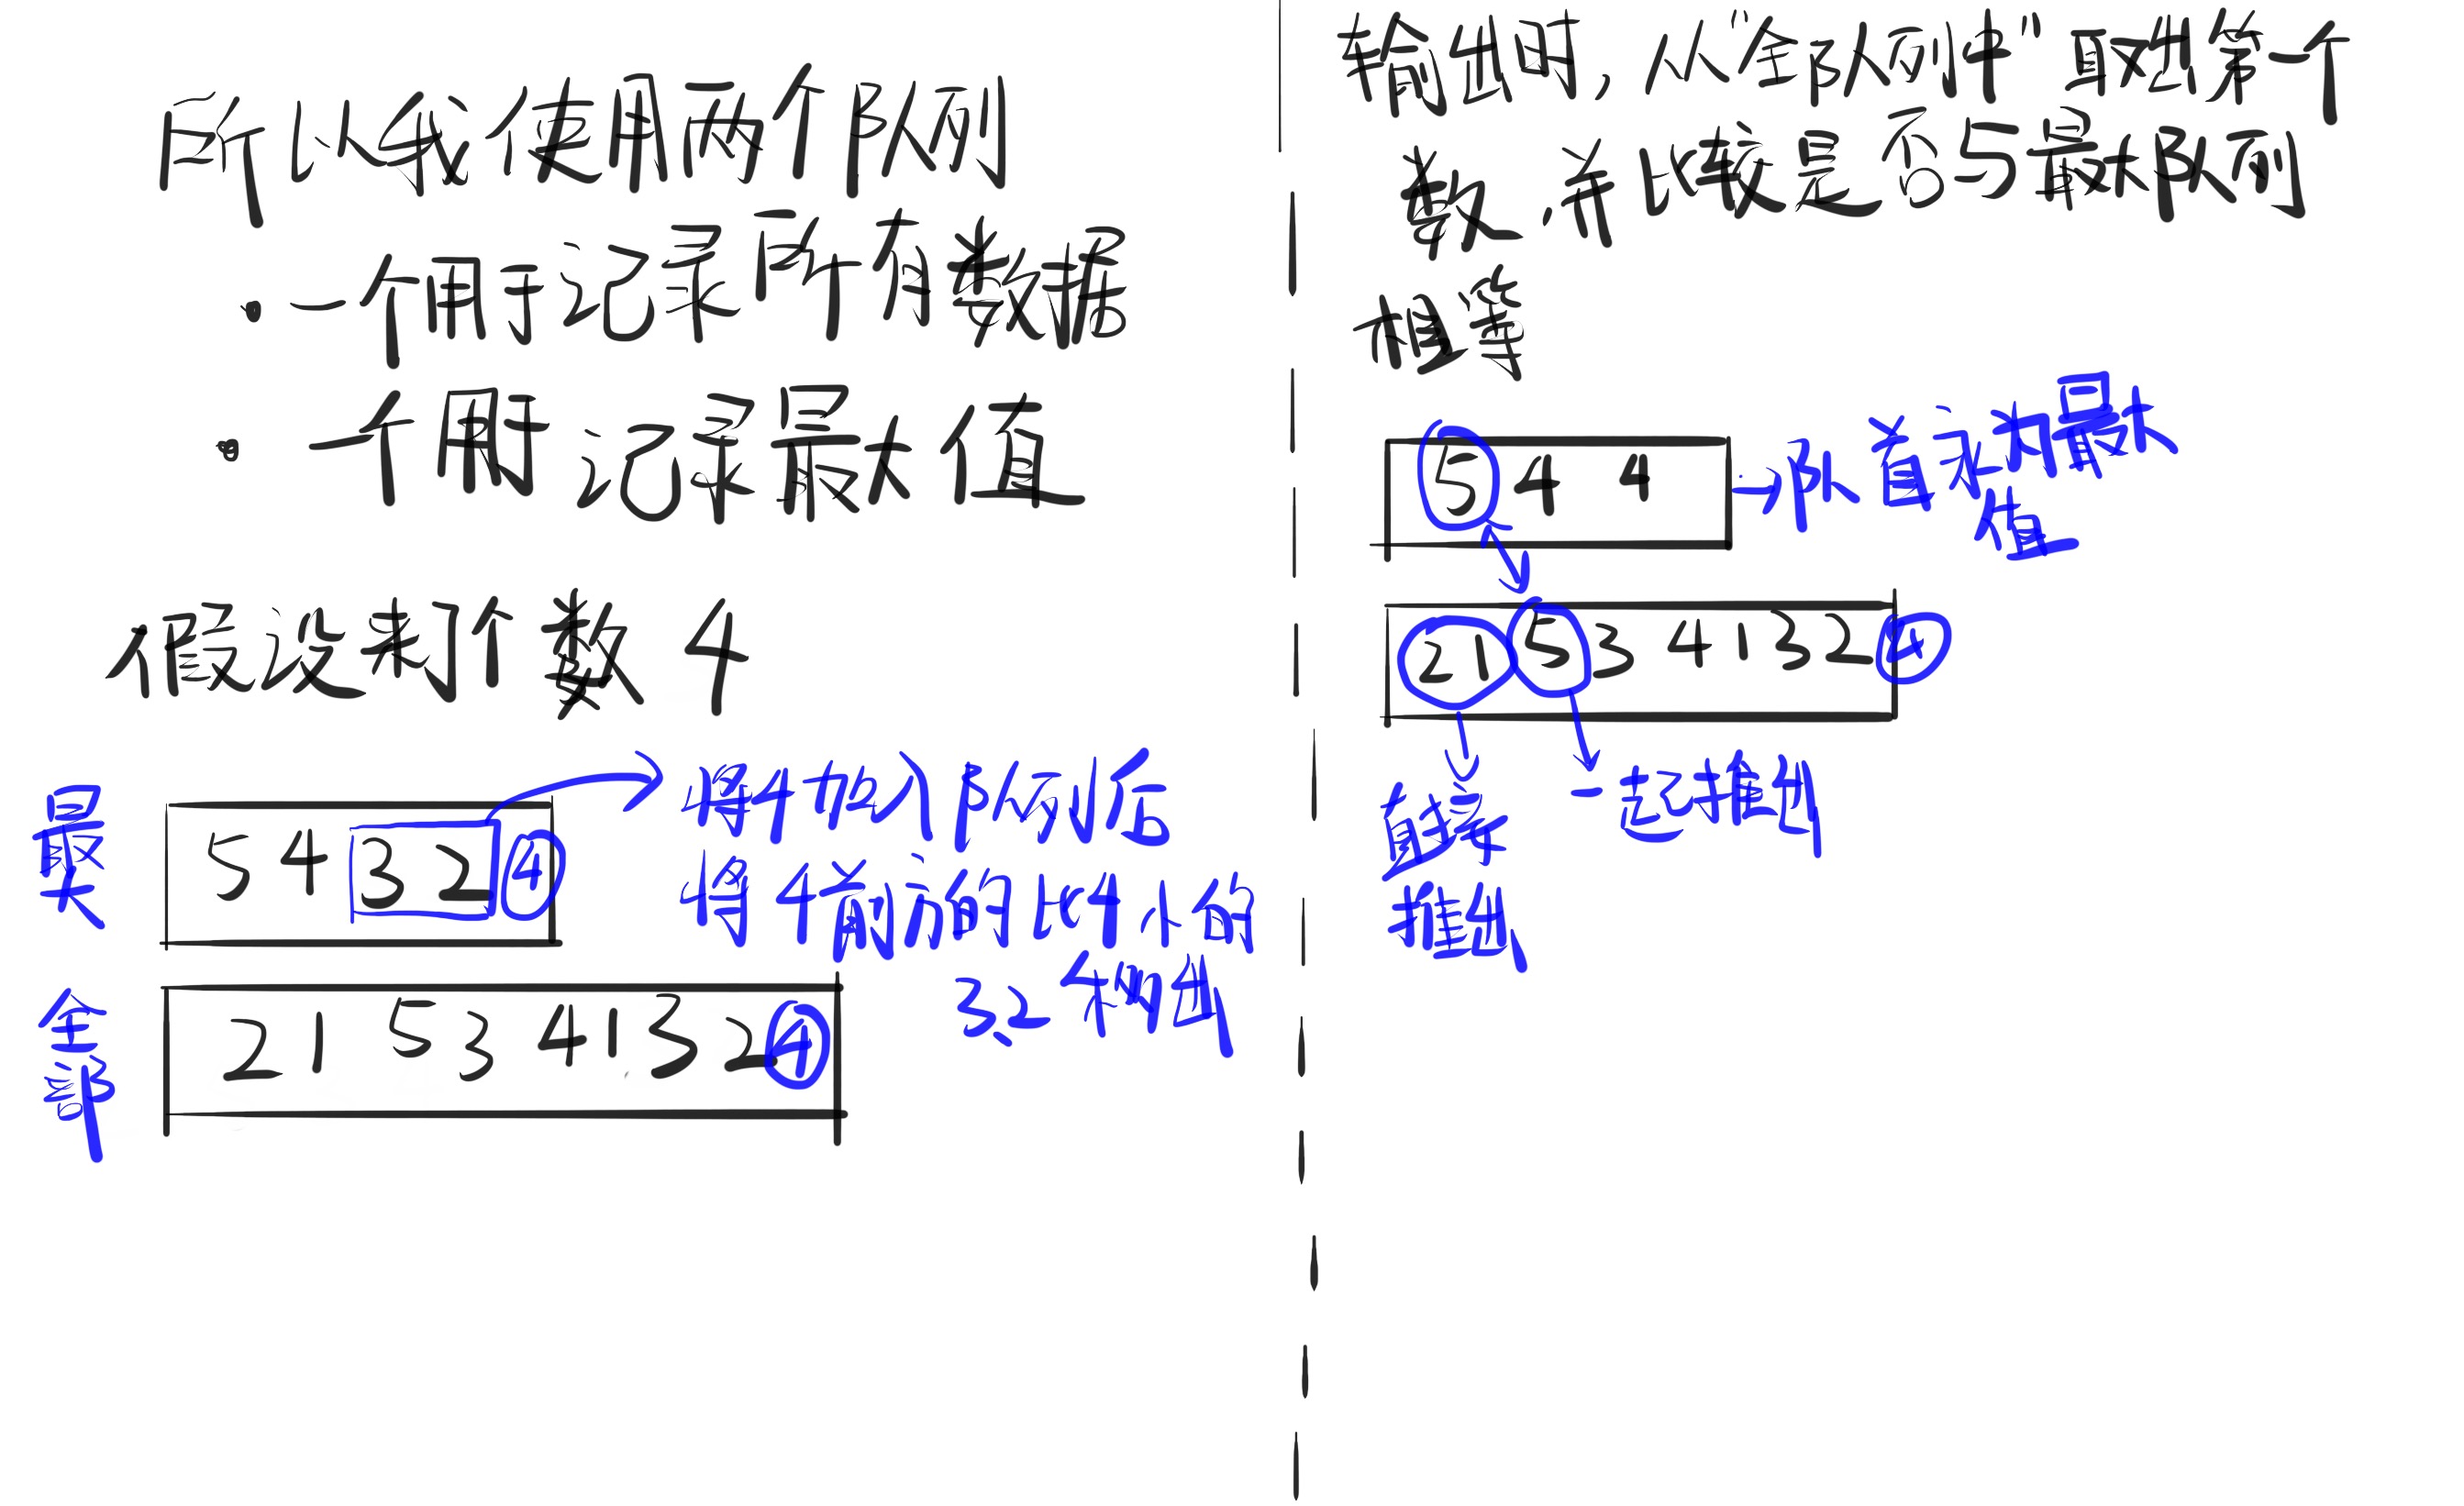 所以我使用两个队列
·一个用于记录所有数据
·一个用于记录最大值
假设来个数 4
最大
5 4 3 2 4
将4加入队列后
将4前方的比4小的
3、2 都推出
全部
2 1 5 3 4 1 3 2 4
输出时,从“全队列中”取出第一个
数,并比较是否与最大队列
相等
5 4 4
→队首永为最大
值
2 1 5 3 4 1 3 2 4
直接
推出
一起推出